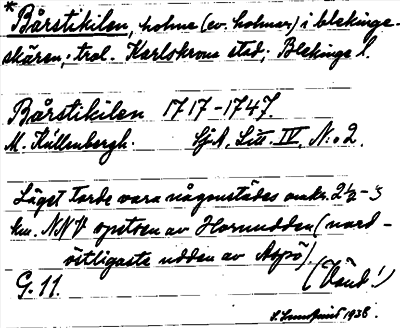 *Bårstikilen, holme (ev. holmar) i blekinge-
skären; trol. Karlskrona stad; Blekinge l.
Bårstikilen 1717-1747.
M. Källenbergh. SjA, Litt. IV, N:o 2.
Läget torde vara någonstädes omkr. 2½-3
km. NNV av Hornudden (nord-
östligaste udden av Aspö).
G. 11. (Vänd!)
1938.